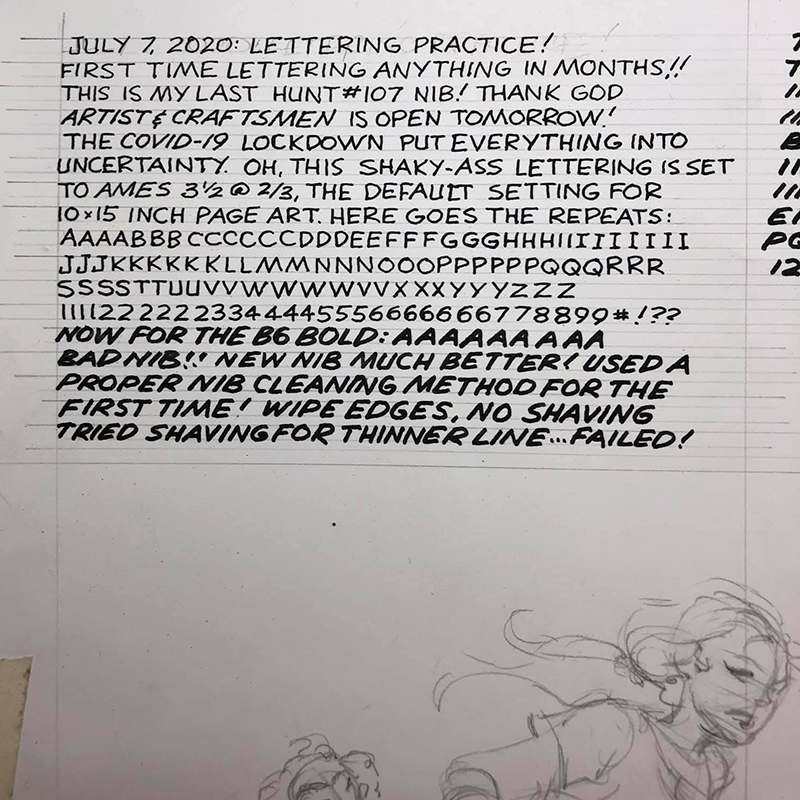 JULY 7, 2020: LETTERING PRACTICE!
FIRST TIME LETTERING ANYTHING IN MONTHS!!
THIS IS MY LAST HUNT #107 NIB! THANK GOD
ARTIST & CRAFTSMEN IS OPEN TOMORROW!
THE COVID-19 LOCKDOWN PUT EVERYTHING INTO
UNCERTAINTY. OH, THIS SHAKY-ASS LETTERING IS SET
TO AMES 3 1/2 @ 2/3, THE DEFAULT SETTING FOR
10×15 INCH PAGE ART. HERE GOES THE REPEATS:
AAAABBBCCCCCCCDDDEEFFFGGGHHHIIIIIIIII
JJJKKKKKKLLMMNNNOOOPPPPPPQQQRRR
SSSSTTUUVVWWWWVVXXXYYYZZZ
1111222222334444555666666677889 9#!??
NOW FOR THE B6 BOLD: AAAAAAAAA
BAD NIB!! NEW NIB MUCH BETTER! USED A
PROPER NIB CLEANING METHOD FOR THE
FIRST TIME! WIPE EDGES, NO SHAVING
TRIED SHAVING FOR THINNER LINE...FAILED!